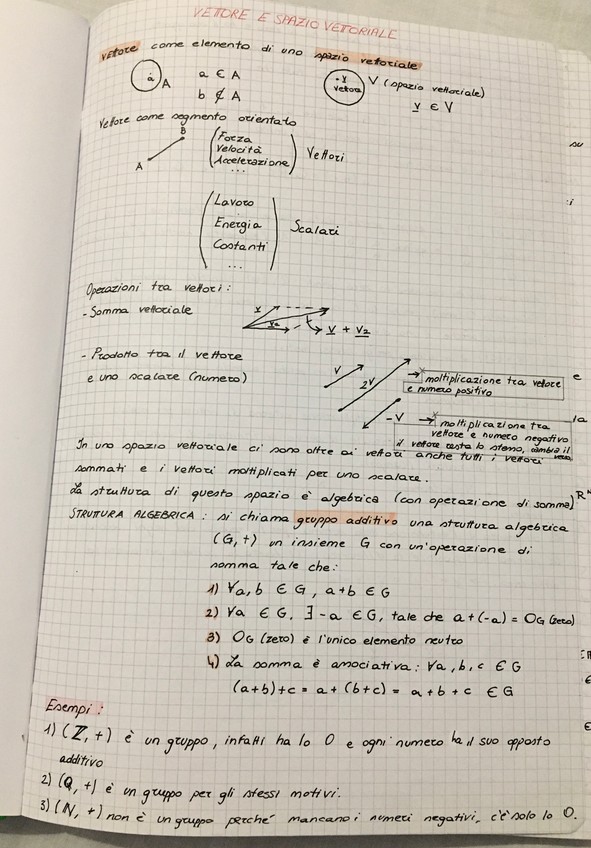 VETTORE E SPAZIO VETORIALE
vettore come elemento di uno spazio vettoriale
a A a ∈ A v vettore V (spazio vettoriale)
b ∉ A v ∈ V
Vettore come segmento orientato
A B (Forza Velocità Accelerazione ...) Vettori
(Lavoro Energia Costanti ...) Scalari
Operazioni tra vettori:
- Somma vettoriale v v2 v + v2
- Prodotto tra il vettore
e uno scalare (numero)
v 2v → moltiplicazione tra vettore
e numero positivo
-v → moltiplicazione tra
vettore e numero negativo
il vettore resta lo stesso, cambia il verso
In uno spazio vettoriale ci sono oltre ai vettori anche tutti i vettori
sommati e i vettori moltiplicati per uno scalare.
La struttura di questo spazio è algebrica (con operazione di somma)
STRUTTURA ALGEBRICA: si chiama gruppo additivo una struttura algebrica
(G,+) un insieme G con un'operazione di
somma tale che:
1) ∀a,b ∈ G, a+b ∈ G
2) ∀a ∈ G, ∃ -a ∈ G, tale che a+(-a) = OG (zero)
3) OG (zero) è l'unico elemento neutro
4) La somma è associativa: ∀a,b,c ∈ G
(a+b)+c = a+(b+c) = a+b+c ∈ G
Esempi:
1) (ℤ,+) è un gruppo, infatti ha lo 0 e ogni numero ha il suo opposto
additivo
2) (ℚ,+) è un gruppo per gli stessi motivi.
3) (ℕ,+) non è un gruppo perché mancano i numeri negativi, c'è solo lo 0.
su
e
la